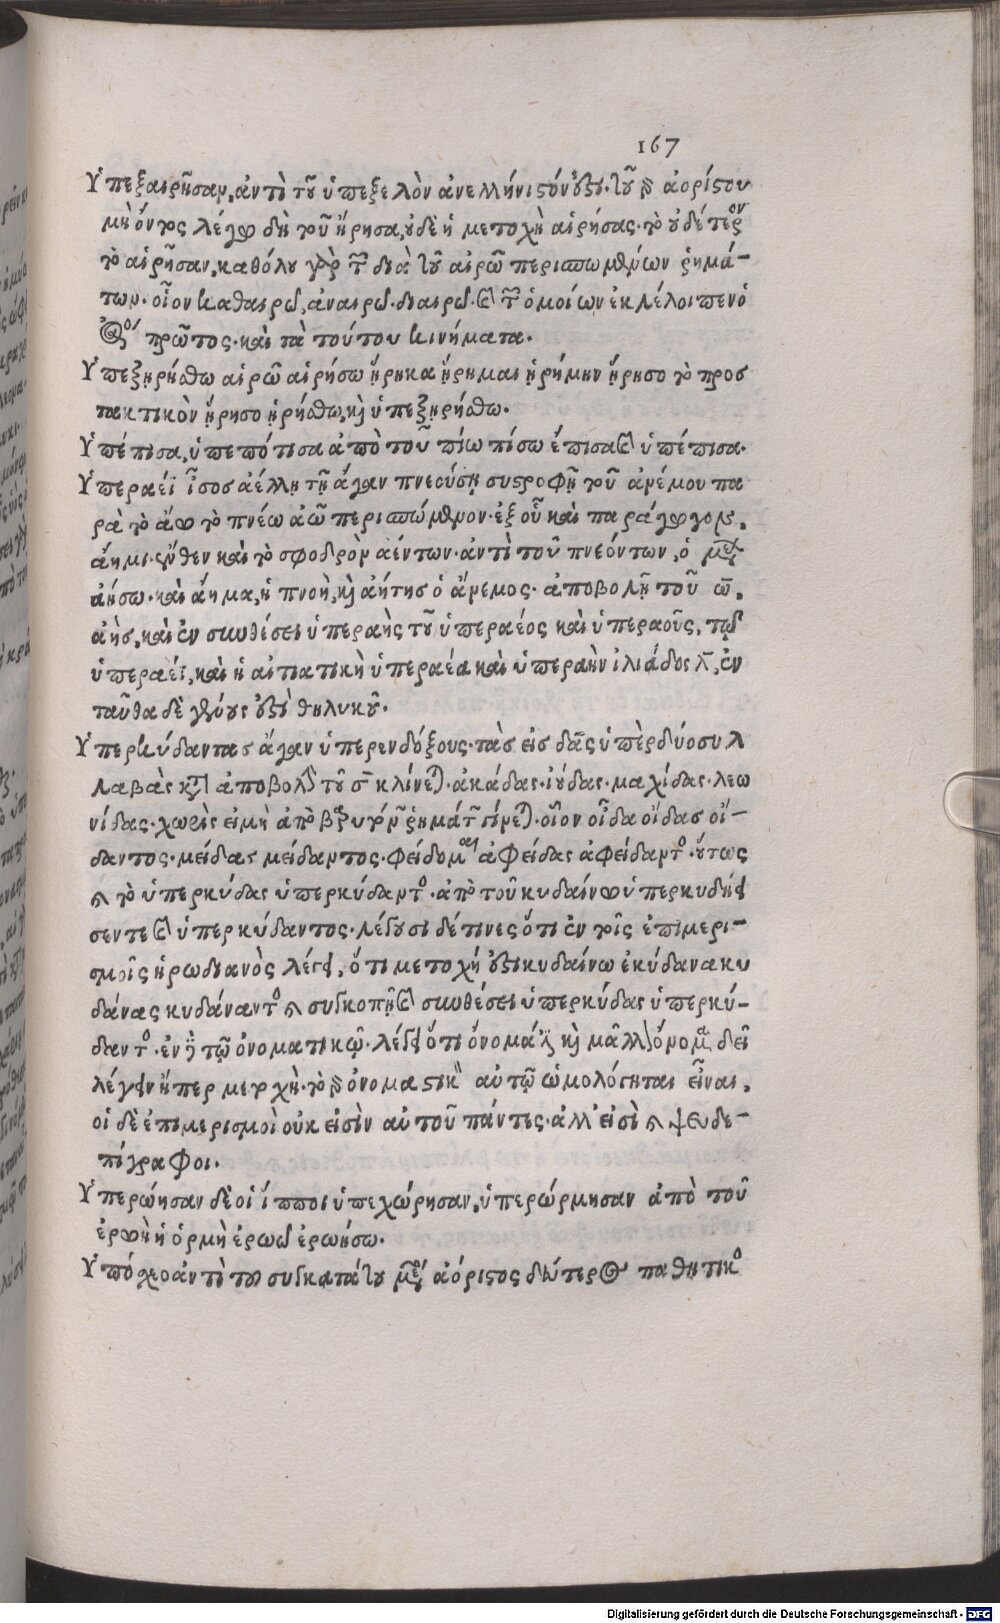 167
Ὑπεξαιρῆσαν, ἀντὶ τοῦ ὑπεξελὸν ἀνελλήνιστόν ἐστι. τοῦ γὰρ ἀορίστου
μὴ ὄντος λέγω δὴ τοῦ ᾕρησα, οὐδὲ ἡ μετοχὴ αἱρήσας. τὸ οὐδέτερον
τὸ αἱρῆσαν, καθόλου γὰρ τῶν διὰ τοῦ αἱρῶ περισπωμένων ῥημά-
των. οἷον καθαιρῶ, ἀναιρῶ. διαιρῶ. καὶ τῶν ὁμοίων ἐκλέλοιπεν ὁ
πρῶτος. καὶ τὰ τούτου κινήματα.
Ὑπεξῃρήσθω αἱρῶ αἱρήσω ᾕρηκα ᾕρημαι ᾑρήμην ᾕρησο τὸ προσ
τακτικὸν ᾕρησο ᾑρήσθω, καὶ ὑπεξῃρήσθω.
Ὑπέπισα, ὑπεπότισα ἀπὸ τοῦ πίω πίσω ἔπισα καὶ ὑπέπισα.
Ὑπεραέϊ ἶσος ἀέλλῃ τῇ ἄγαν πνεούσῃ συστροφῇ τοῦ ἀνέμου πα
ρὰ τὸ ἄω τὸ πνέω ἀῶ περισπώμενον. ἐξ οὗ καὶ παράγωγον,
ἄημι. ἔνθεν καὶ τὸ σφοδρὸν αέντων. ἀντὶ τοῦ πνεόντων, ὁ
ἀήσω. καὶ ἄημα, ἡ πνοὴ, καὶ ἀήτης ὁ ἄνεμος. ἀποβολῇ τοῦ ω,
ἀὴς, καὶ ἐν συνθέσει ὑπεραὴς τοῦ ὑπεραέος καὶ ὑπεραοῦς, τῷ
ὑπεραέϊ, καὶ ἡ αἰτιατικὴ ὑπεραέα καὶ ὑπεραὴν ἰλιάδος λ, ἐν
ταῦθα δὲ γένους ἐστὶ θηλυκοῦ.
Ὑπερκύδαντας ἄγαν ὑπερενδόξους. τὰς εἰς δας ὑπὲρ δύο συλ
λαβὰς κατὰ ἀποβολὴν τοῦ σ κλίνεται. ἀκάδας. ἰούδας. μαχίδας. λεω
νίδας. χωρὶς εἰ μὴ ἀπὸ βαρυτόνων ῥημάτων γίνεται. οἷον οἶδα οἴδας οἴ-
δαντος. μείδας μείδαντος. φείδομαι ἀφείδας ἀφείδαντος. οὕτως
καὶ τὸ ὑπερκύδας ὑπερκύδαντος. ἀπὸ τοῦ κυδαίνω ὑπερκυδή
σεντε καὶ ὑπερκύδαντος. λέγουσι δέ τινες ὅτι ἐν τοῖς ἐπιμερι-
σμοῖς ἡρωδιανὸς λέγει, ὅτι μετοχή ἐστι κυδαίνω ἐκύδανα κυ
δάνας κυδάναντος καὶ συγκοπῇ καὶ συνθέσει ὑπερκύδας ὑπερκύ-
δαντος. ἐν δὲ τῷ ὀνοματικῷ. λέγει ὅτι ὄνομά ἐστι καὶ μᾶλλον ὄνομα δεῖ
λέγειν ἤπερ μετοχὴ. τὸ γὰρ ὀνομαστικὸν αὐτῷ ὡμολόγηται εἶναι,
οἱ δὲ ἐπιμερισμοὶ οὐκ εἰσὶν αὐτοῦ πάντες. ἀλλ’ εἰσὶ καὶ ψευδε-
πίγραφοι.
Ὑπερώησαν δὲ οἱ ἵπποι ὑπεχώρησαν, ὑπερώρμησαν ἀπὸ τοῦ
ἐρωὴ ἡ ὁρμὴ ἐρωῶ ἐρωήσω.
Ὑπόσχεο ἀντὶ τοῦ συγκατάθου μέσος ἀόριστος δεύτερος παθητικὸς